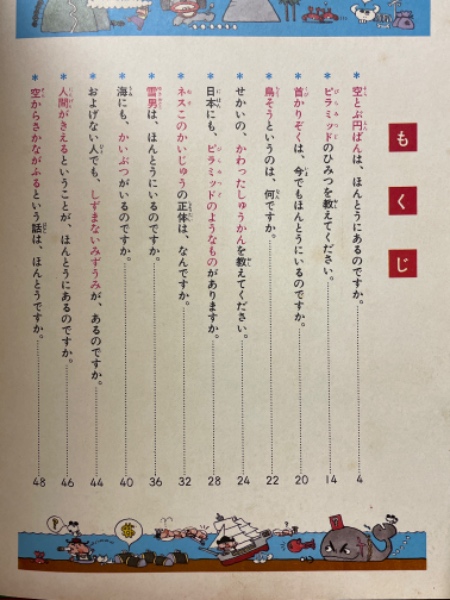 もくじ
*空とぶ円ばんは、ほんとうにあるのですか。……4
*ピラミッドのひみつを教えてください。……14
*首かりぞくは、今でもほんとうにいるのですか。……20
*鳥そうというのは、何ですか。……22
*せかいの、かわったしゅうかんを教えてください。……24
*日本にも、ピラミッドのようなものがありますか。……28
*ネスこのかいじゅうの正体は、なんですか。……32
*雪男は、ほんとうにいるのですか。……36
*海にも、かいぶつがいるのですか。……40
*およげない人でも、しずまないみずうみが、あるのですか。……44
*人間がきえるということが、ほんとうにあるのですか。……46
*空からさかながふるという話は、ほんとうですか。……48